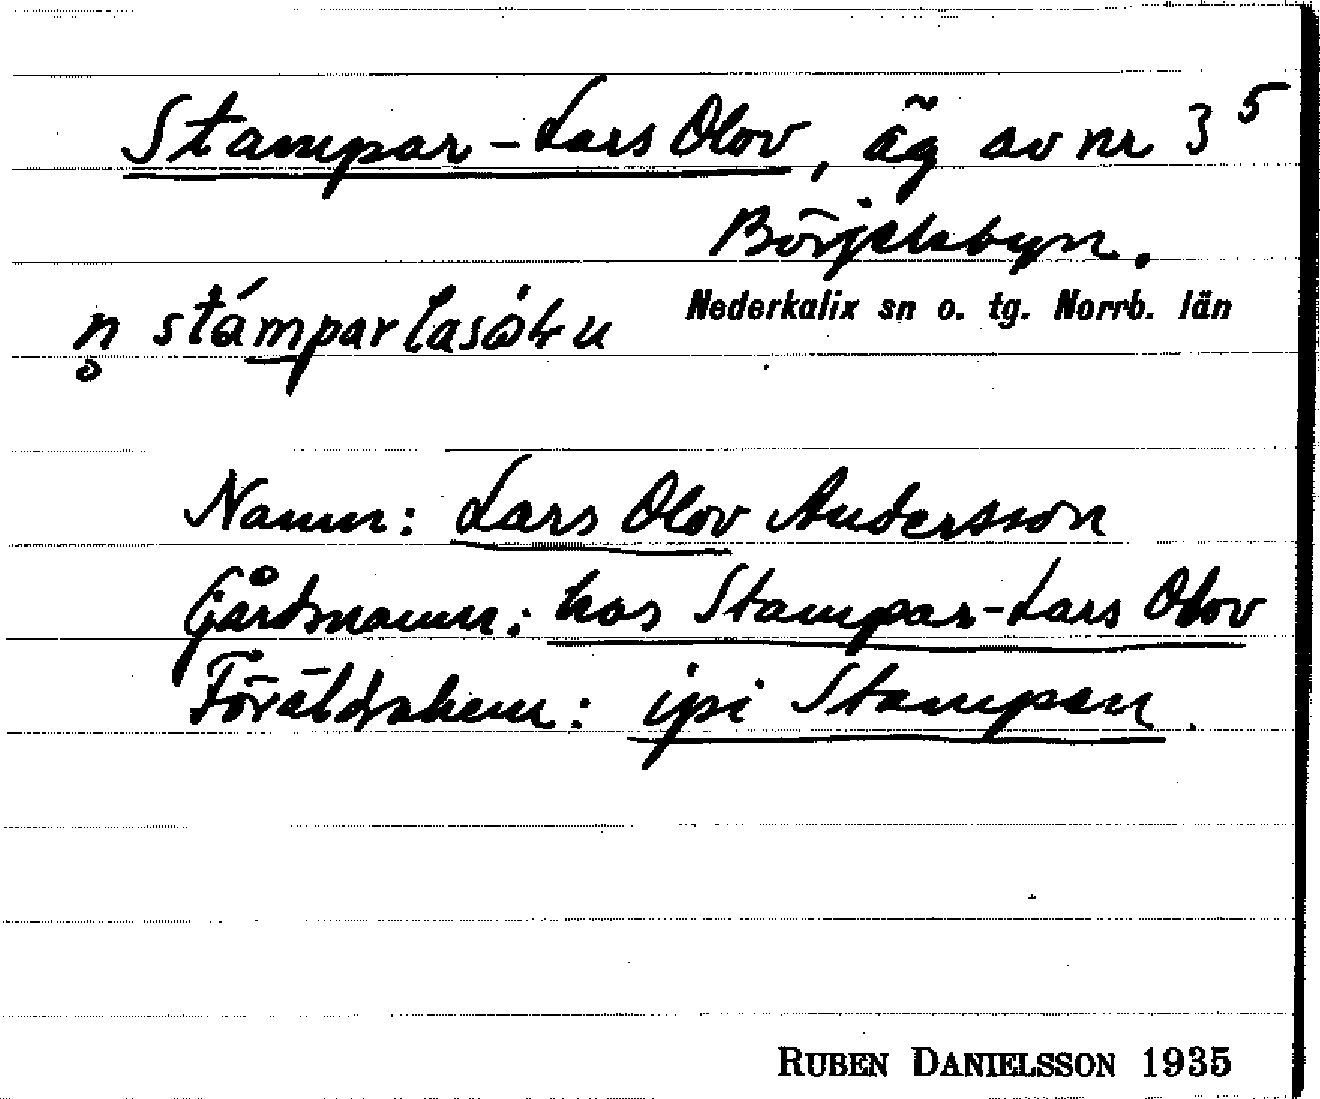 Stampar-Lars Olov, äg av nr 3⁵
Börjelsbyn.
Nederkalix sn o. tg. Norrb. län
Namn: Lars Olov Andersson
Gårdsnamn: hos Stampar-Lars Olov
Föräldrahem: ipi Stampen.
RUBEN DANIELSSON 1935